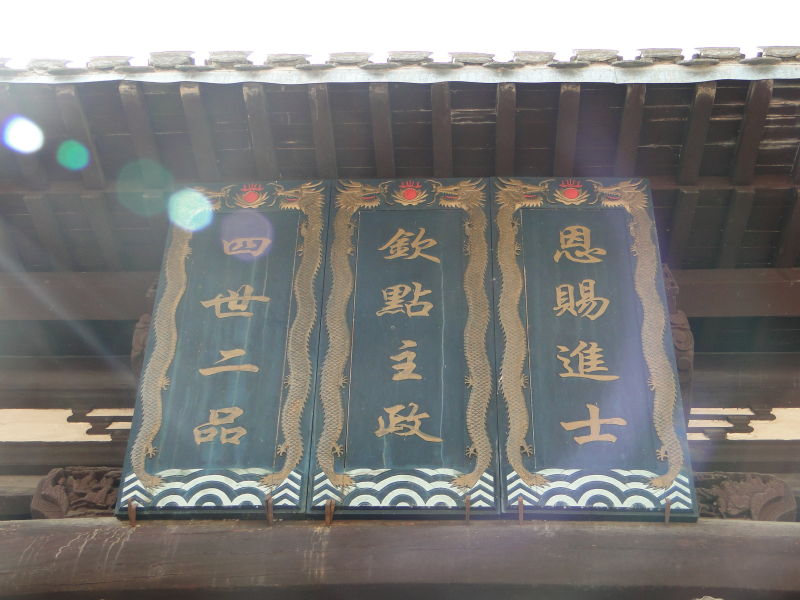 恩賜進士
欽點主政
四世二品